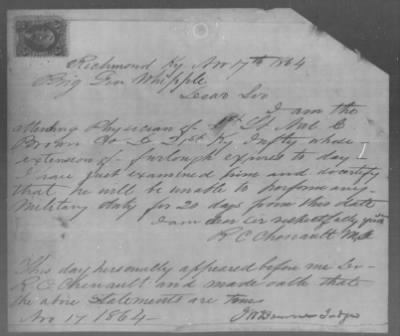 Richmond Ky Nov 17th 1864
Brig Gen Whipple
Dear Sir
I am the
attending Physician of 1st Lt
Brown Co D 21st Ky Infty whose
extension of furlough expires to day
I have just examined him and do certify
that he will be unable to perform any
Military duty for 20 days from this date
I am dear sir respectfully yours
R C Chenault M.D.
This day personally appeared before me
R. C. Chenault and made oath that
the above statements are true
Nov 17 1864